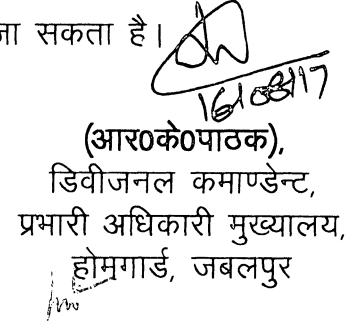 जा सकता है।
16/08/17
(आर0के0पाठक),
डिवीजनल कमाण्डेन्ट,
प्रभारी अधिकारी मुख्यालय,
होमगार्ड, जबलपुर